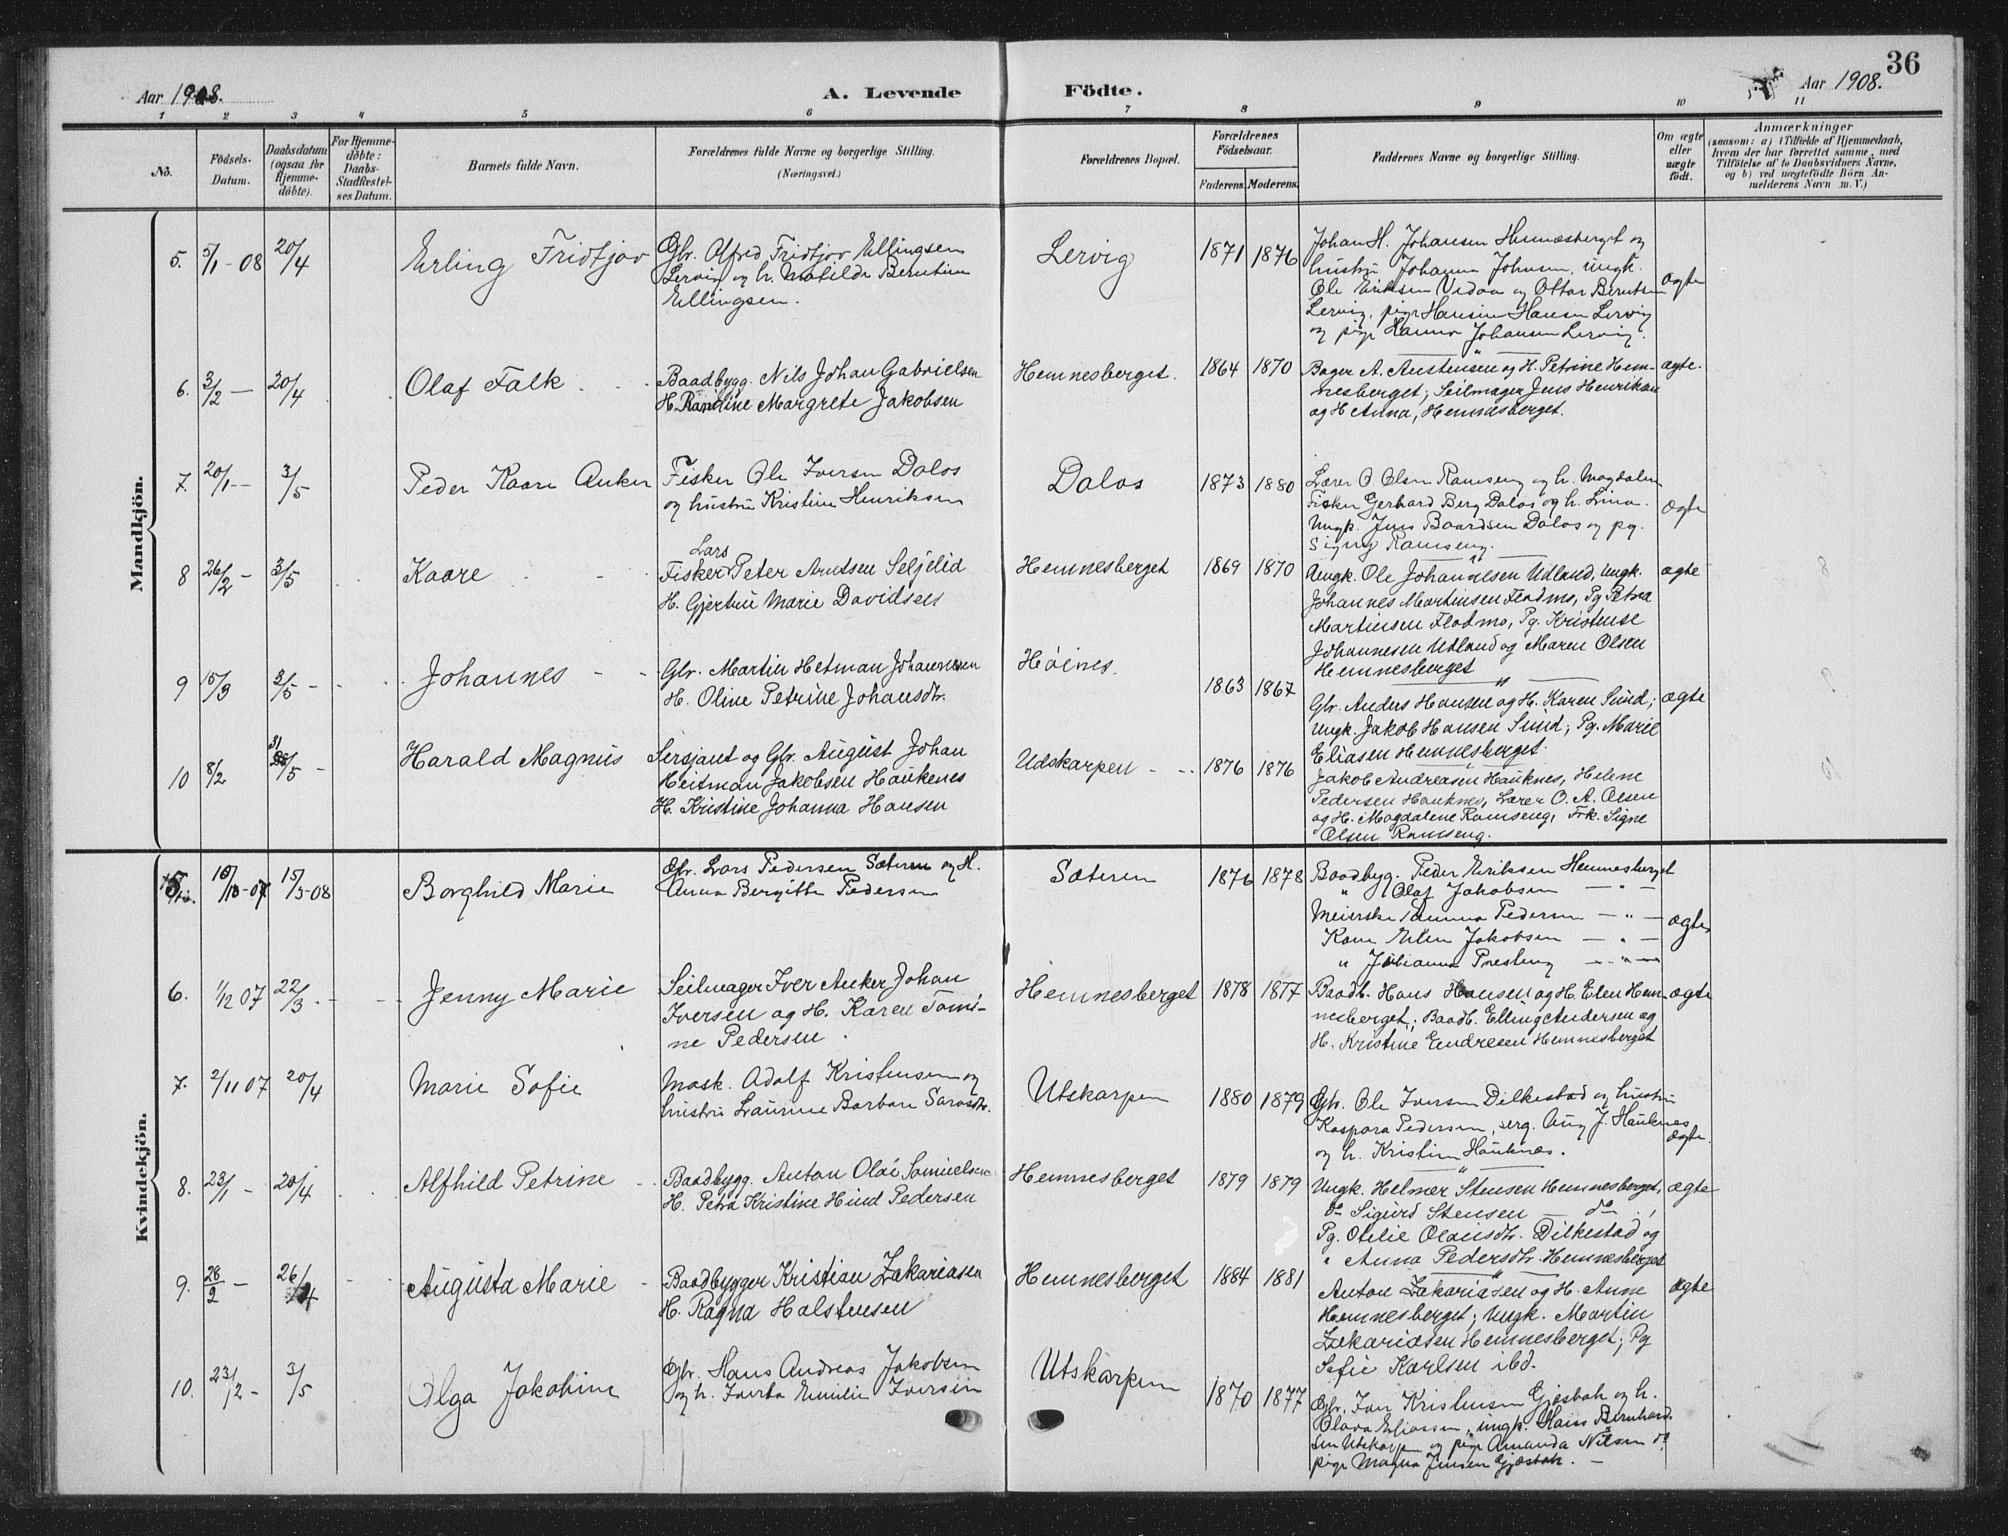 36
Aar 1908.
A. Levende
Födte.
Aar 1908.
1 2 3 4 5 6 7 8 9 10 11
No.
Födsels-
Datum.
Daabsdatum
(ogsaa for
Hjemme-
döbte).
For Hjemme-
döbte:
Daabs-
Stadfæstel-
ses Datum.
Barnets fulde Navn.
Forældrenes fulde Navne og borgerlige Stilling.
(Næringsvei.)
Forældrenes Bopæl.
Forældrenes
Födselsaar.
Faderens. Moderens.
Faddernes Navne og borgerlige Stilling.
Om ægte
eller
uægte
födt.
Anmærkninger
(saasom: a) i Tilfælde af Hjemmedaab,
hvem der har forrettet samme, med
Tilföielse af to Daabsvidners Navne,
og b) ved uægtefödte Börn An-
melderens Navn m. V.)
Mandkjön.
5. 5/1-08 20/4 Erling Fridtjov
Gbr. Alfred Fridtjov Ellingsen
Lervig og h. Matilde Berntine
Ellingsen.
Lervig 1871 1876
Johan H. Johansen Hemnesberget og
hustru Johanna Johnsen, ungk.
Ole Eriksen Vedaa og Ottar Berntsen
Lervig, pige Hansine Hansen Lervig
og pige Hanna Johansen Lervig.
ægte
6. 3/2 — 20/4 Olaf Falk
Baadbygg. Nils Johan Gabrielsen
H. Randine Margrete Jakobsen
Hemnesberget. 1864 1870
Bager A. Austensen og H. Petrine Hem-
nesberget; Seilmager Jens Henriksen
og H Anna, Hemnesberget.
ægte.
7. 20/1 — 3/5 Peder Kaare Anker
Fisker Ole Iversen Dalos
og hustru Kristine Henriksen
Dalos 1873 1880
Lærer O. Olsen Ramseng og h. Magdalene
Fisker Gerhard Berg Dalos og h. Lina.
Ungk. Jens Baardsen Dalos og pg.
Signy Ramseng.
ægte
8 26/2 — 3/5 Kaare
Lars
Fisker Peter Arntsen Seljelid
H. Gjertru Marie Davidsen
Hemnesberget 1869 1870
Ungk. Ole Johannesen Udland, Ungk.
Johannes Martinsen Flodmo, Pg Petra
Martinsen Flodmo, Pg. Kristense
Johannesen Utland og Maren Olsen
Hemnesberget
ægte
9 15/3 3/5 Johannes
Gbr. Martin Hetman Johannesen
H. Oline Petrine Johansdtr.
Høines. 1863 1867
Gbr. Anders Hansen og H. Karen Sund;
Ungk. Jakob Hansen Sund; Pg. Marie
Eliasen Hemnesberget.
ægte
10 8/2 31/5 Harald Magnus
Sersjant og Gbr. August Johan
Heitman Jakobsen Haukenes
H. Kristine Johanna Hansen
Udskarpen 1876 1876
Jakob Andreasen Hauknes, Helene
Pedersen Hauknes, Lærer O. A. Olsen
og H. Magdalene Ramseng, Frk. Signe
Olsen Ramseng.
Kvindekjön.
5. 16/10-07 15/3-08 Borghild Marie
Gbr. Lars Pedersen Sæteren og H.
Anna Bergitte Pedersen
Sæteren 1876 1878
Baadbyg. Peder Eriksen Hemnesberget
" Olaf Jakobsen — " —
Meierske Pedersen — " —
Kone Elen Jakobsen — " —
" Julianna — " —
ægte
6. 1/12 07 22/3 Jenny Marie
Seilmager Iver Anker Johan
Iversen og H. Karen Tomi-
ne Pedersen.
Hemnesberget 1878 1877
Baadb. Hans Hansen og H. Elen Hem-
nesberget; Baadb. Elling Andersen og
H. Kristine Endresen Hemnesberget
ægte
7. 2/11 07 20/4 Marie Sofie
Mask. Adolf Kristensen og
hustru Laurine Barbara Sarasdtr.
Utskarpen 1880 1879
Gbr. Ole Iversen Dilkestad og hustru
Kaspara Pedersen, serg. Aug J. Hauknes
og h. Kristine Hauknes.
ægte.
8. 23/1 — 20/4 Alfhild Petrine
Baadbygg. Anton Olai Samuelsen
H. Petra Kristine Hind Pedersen
Hemnesberget 1879 1879
Ungk. Helmer Stensen Hemnesberget,
do Sigurd Stensen — do
Pg. Otilie Olausdtr. Dilkestad og
" Anna Pedersdtr. Hemnesberget
ægte
9. 28/2 — 26/4 Augusta Marie
Baadbygger Kristian Zakariasen
H. Ragna Halstensen
Hemnesberget 1884 1881
Anton Zakariasen og H. Anne
Hemnesberget; Ungk. Martin
Zakariasen Hemnesberget; Pg
Sofie Karlsen ibd.
ægte
10. 23/2 — 3/5 Olga Jakobine
Gbr. Hans Andreas Jakobsen
og h. Iverta Emilie Iversen
Utskarpen 1870 1877
Gbr. Kristensen Gjesbak og h.
Olava Eliassen, ungk. Hans Bernhard-
sen Utskarpen og pige Amanda Nilsen do
pige Magna Jensen Gjesbak.